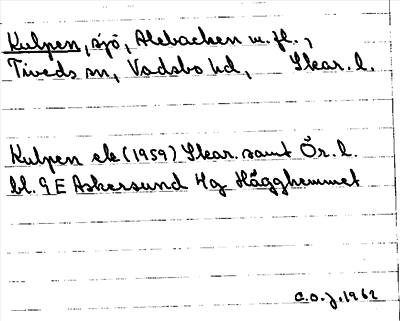 Kulpen, sjö, Alebacken m. fl.,
Tiveds sn, Vadsbo hd, Skar. l.
Kulpen ek (1959) Skar. samt Ör. l.
bl. 9 E Askersund 4g Hägghemmet
C.O.J. 1962